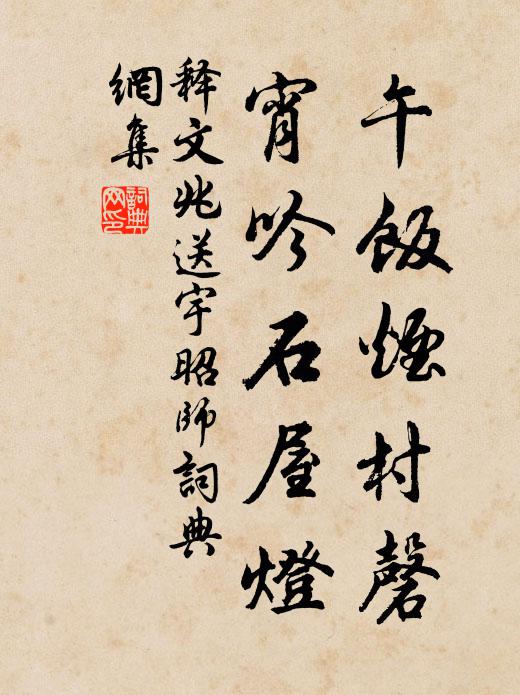 午飯煙村磬
宵吟石屋燈
释文兆送宇昭師詞典
網集
詞典網印